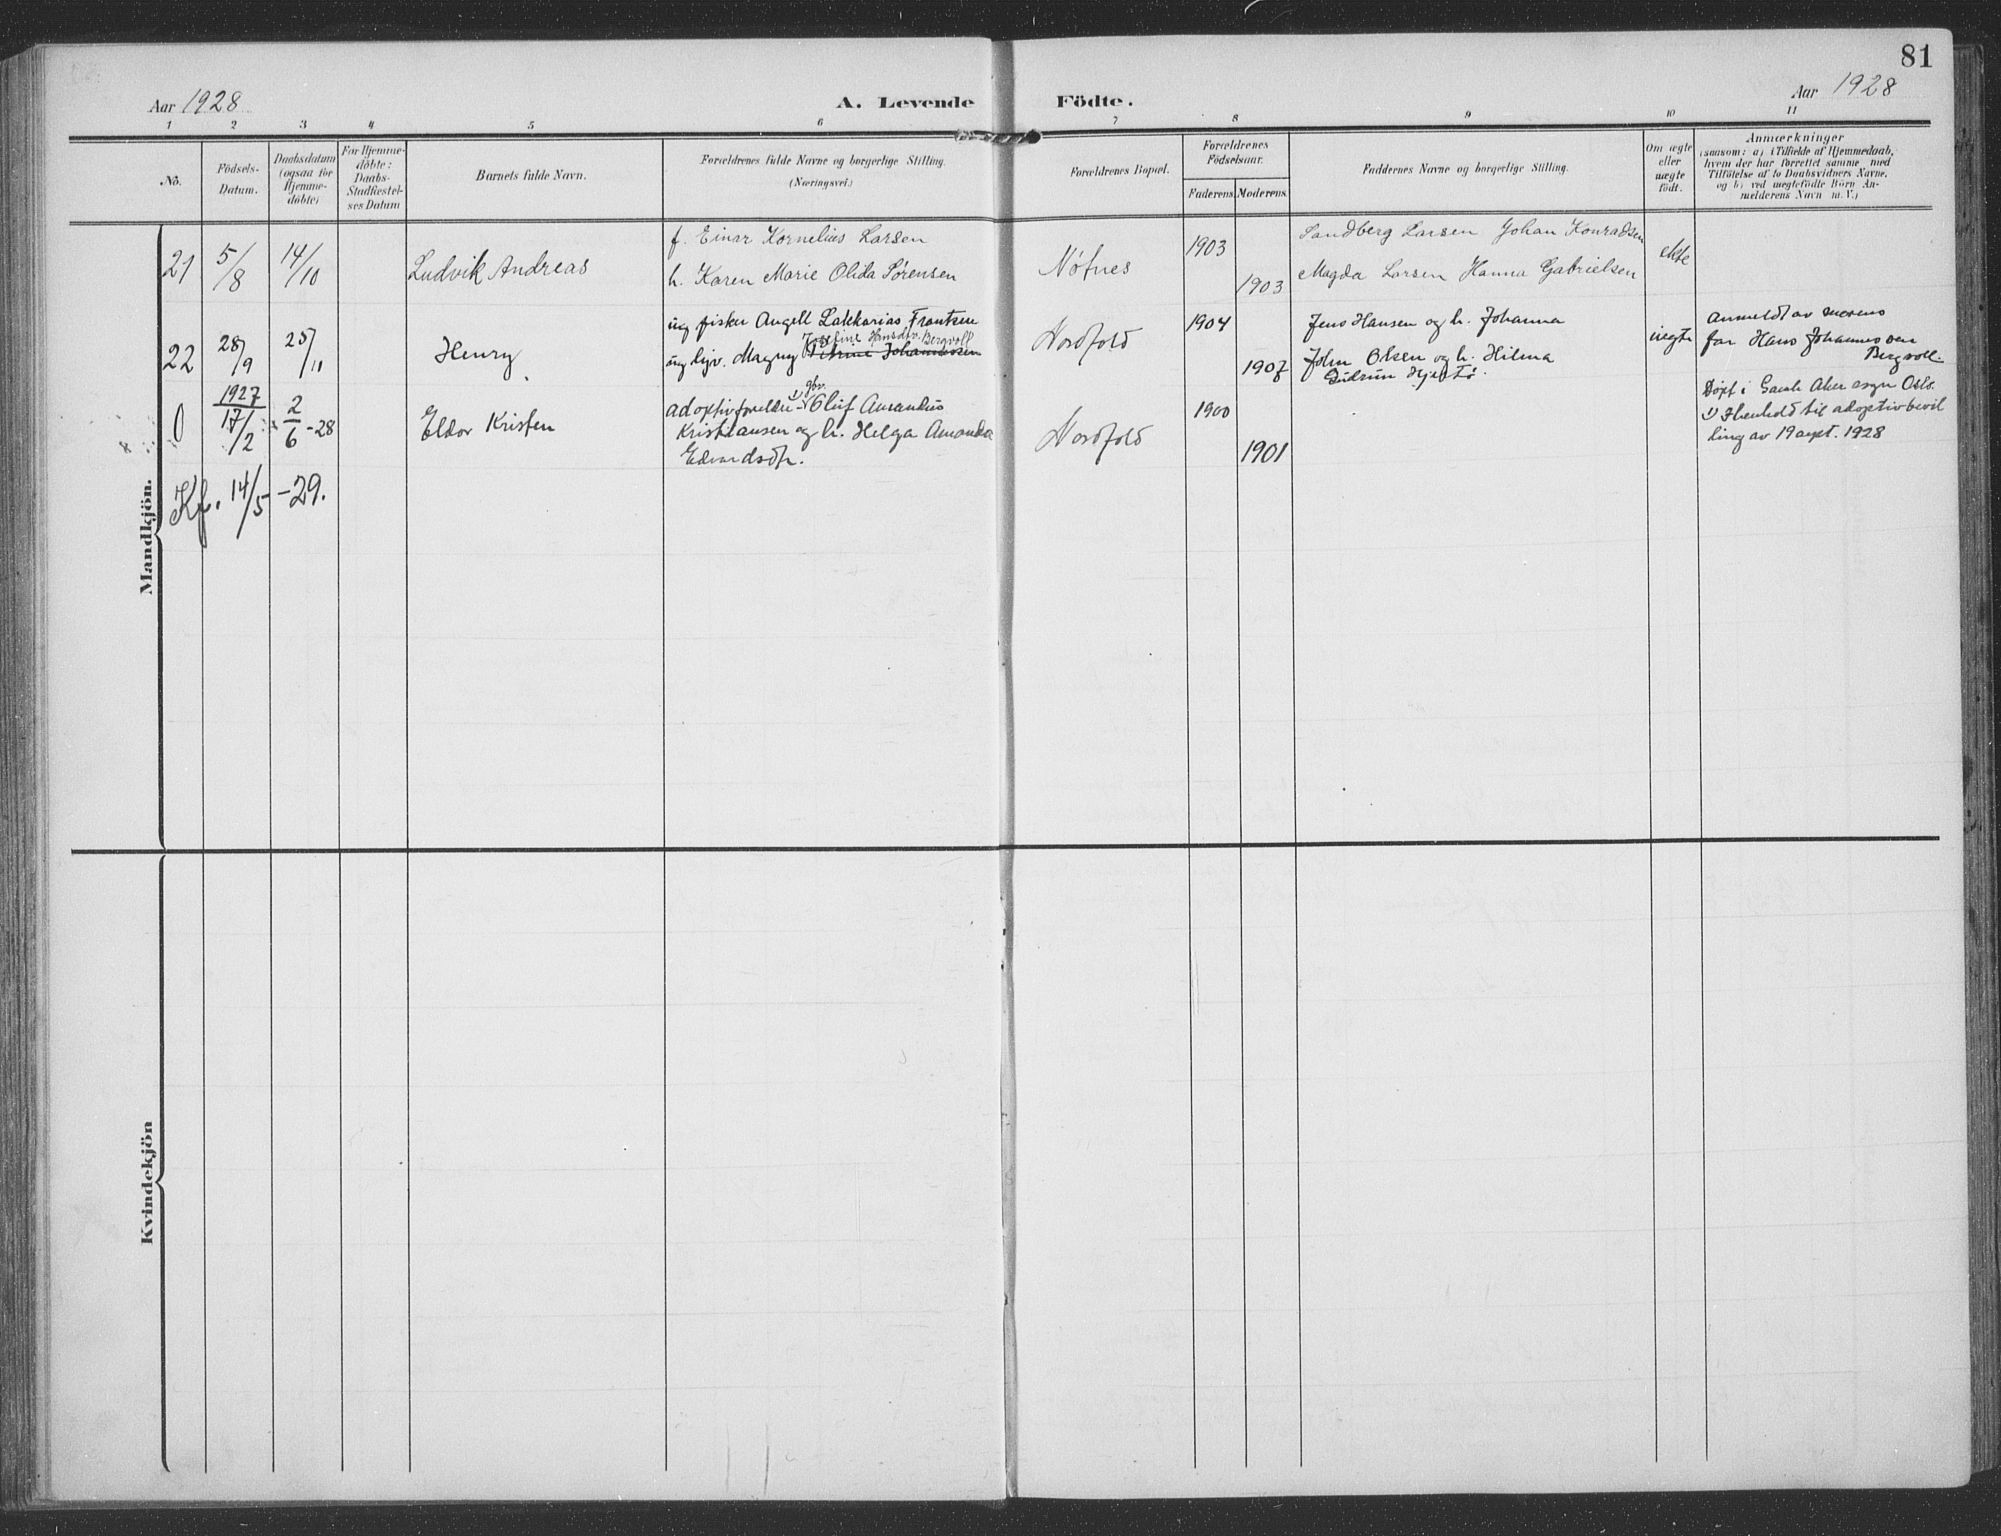 81
Aar 1928 A. Levende Födte. Aar 1928
1 2 3 4 5 6 7 8 9 10 11
No.
Födsels-
Datum.
Daabsdatum
(ogsaa for
Hjemme-
döbte)
For Hjemme-
döbte:
Daabs-
Stadfæstel-
ses Datum
Barnets fulde Navn.
Forældrenes fulde Navne og borgerlige Stilling.
(Næringsvei.)
Forældrenes Bopæl.
Forældrenes
Födselsaar.
Faderens. Moderens.
Faddernes Navne og borgerlige Stilling.
Om ægte
eller
uægte
födt.
Anmærkninger
(saasom: a) i Tilfælde af Hjemmedaab,
hvem der har forrettet samme med
Tilföielse af to Daabsvidners Navne,
og b) ved uegtefödte Börn An-
melderens Navn m. V.)
Mandkjön.
21 5/8 14/10 Ludvik Andreas
f. Einar Kornelius Larsen
h. Karen Marie Olida Sørensen
Nøfnes 1903 1903
Sandberg Larsen Johan Konradsen
Magda Larsen Hanna Gabrielsen
ekte
22 28/9 25/11 Henry
ug fisker Angell Sakkarias Frantsen
Josefine Hansdtr. Bergvoll
ug Magny Johannessen
Nordfold 1904 1907
Jens Hansen og h. Johanna
John Olsen og h. Hilma
Gudrun
uegte
anmeldt av morens
far Hans Johannessen
Bergvoll.
0 1927 17/2 2/6-28 Eldor Kristen
adoptivforeldre 1) gbr. Oluf Amandus
Kristiansen og h. Helga Amanda
Edvardsdtr.
Nordfold 1900 1901
Døpt i Gamle Aker sogn Oslo.
1) I henhold til adoptivbevil
ling av 19 aug. 1928
Kf. 14/5-29.
Kvindekjön